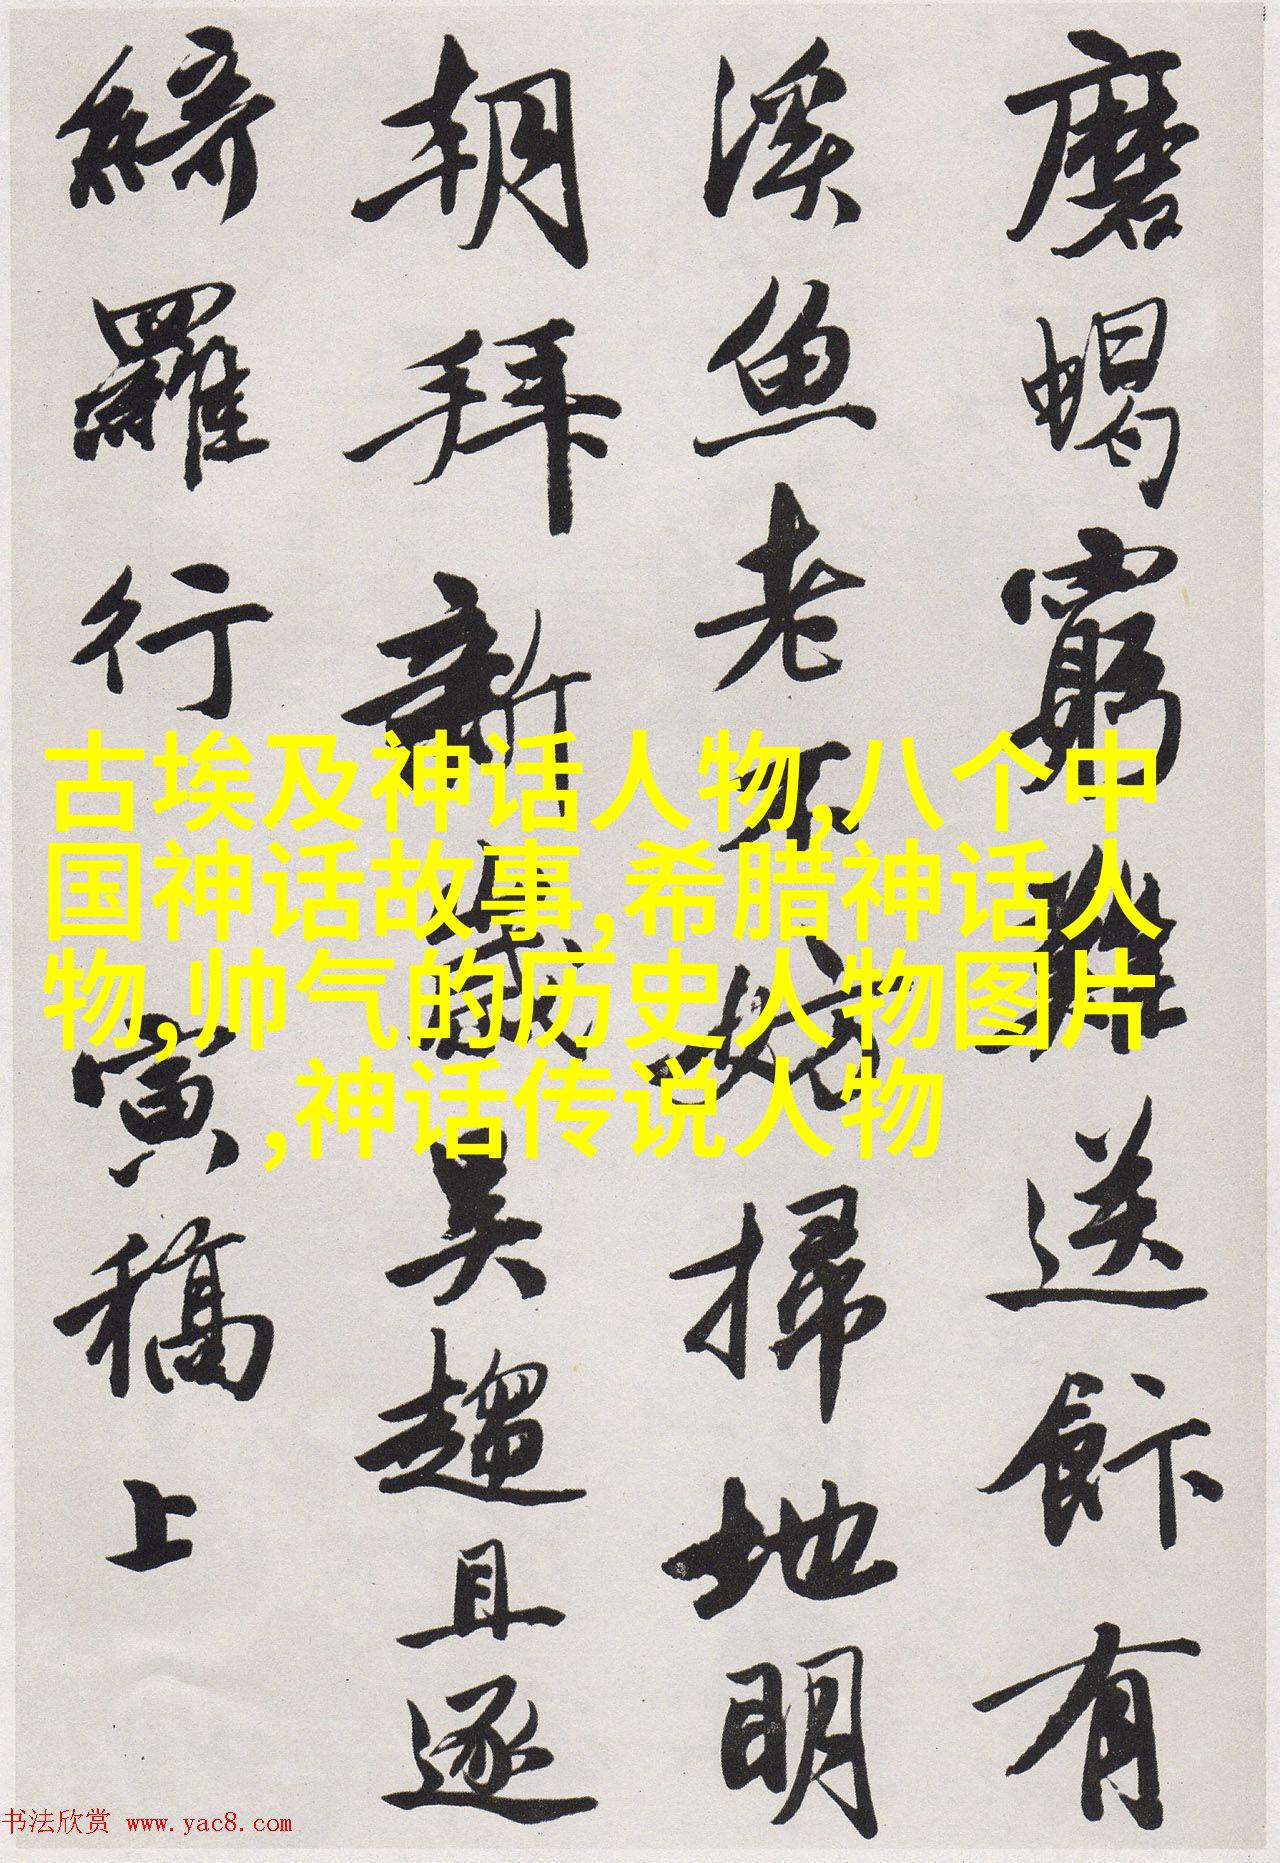 磨蝎窮難送飰有
溪魚老不妨掃地明
朝拜新歲吳趨且逐
綺羅行 寅稿上
古埃及神话人物,八个中
国神话故事,希腊神话人
物,帅气的历史人物图片
,神话传说人物
书法欣赏 www.yac8.com